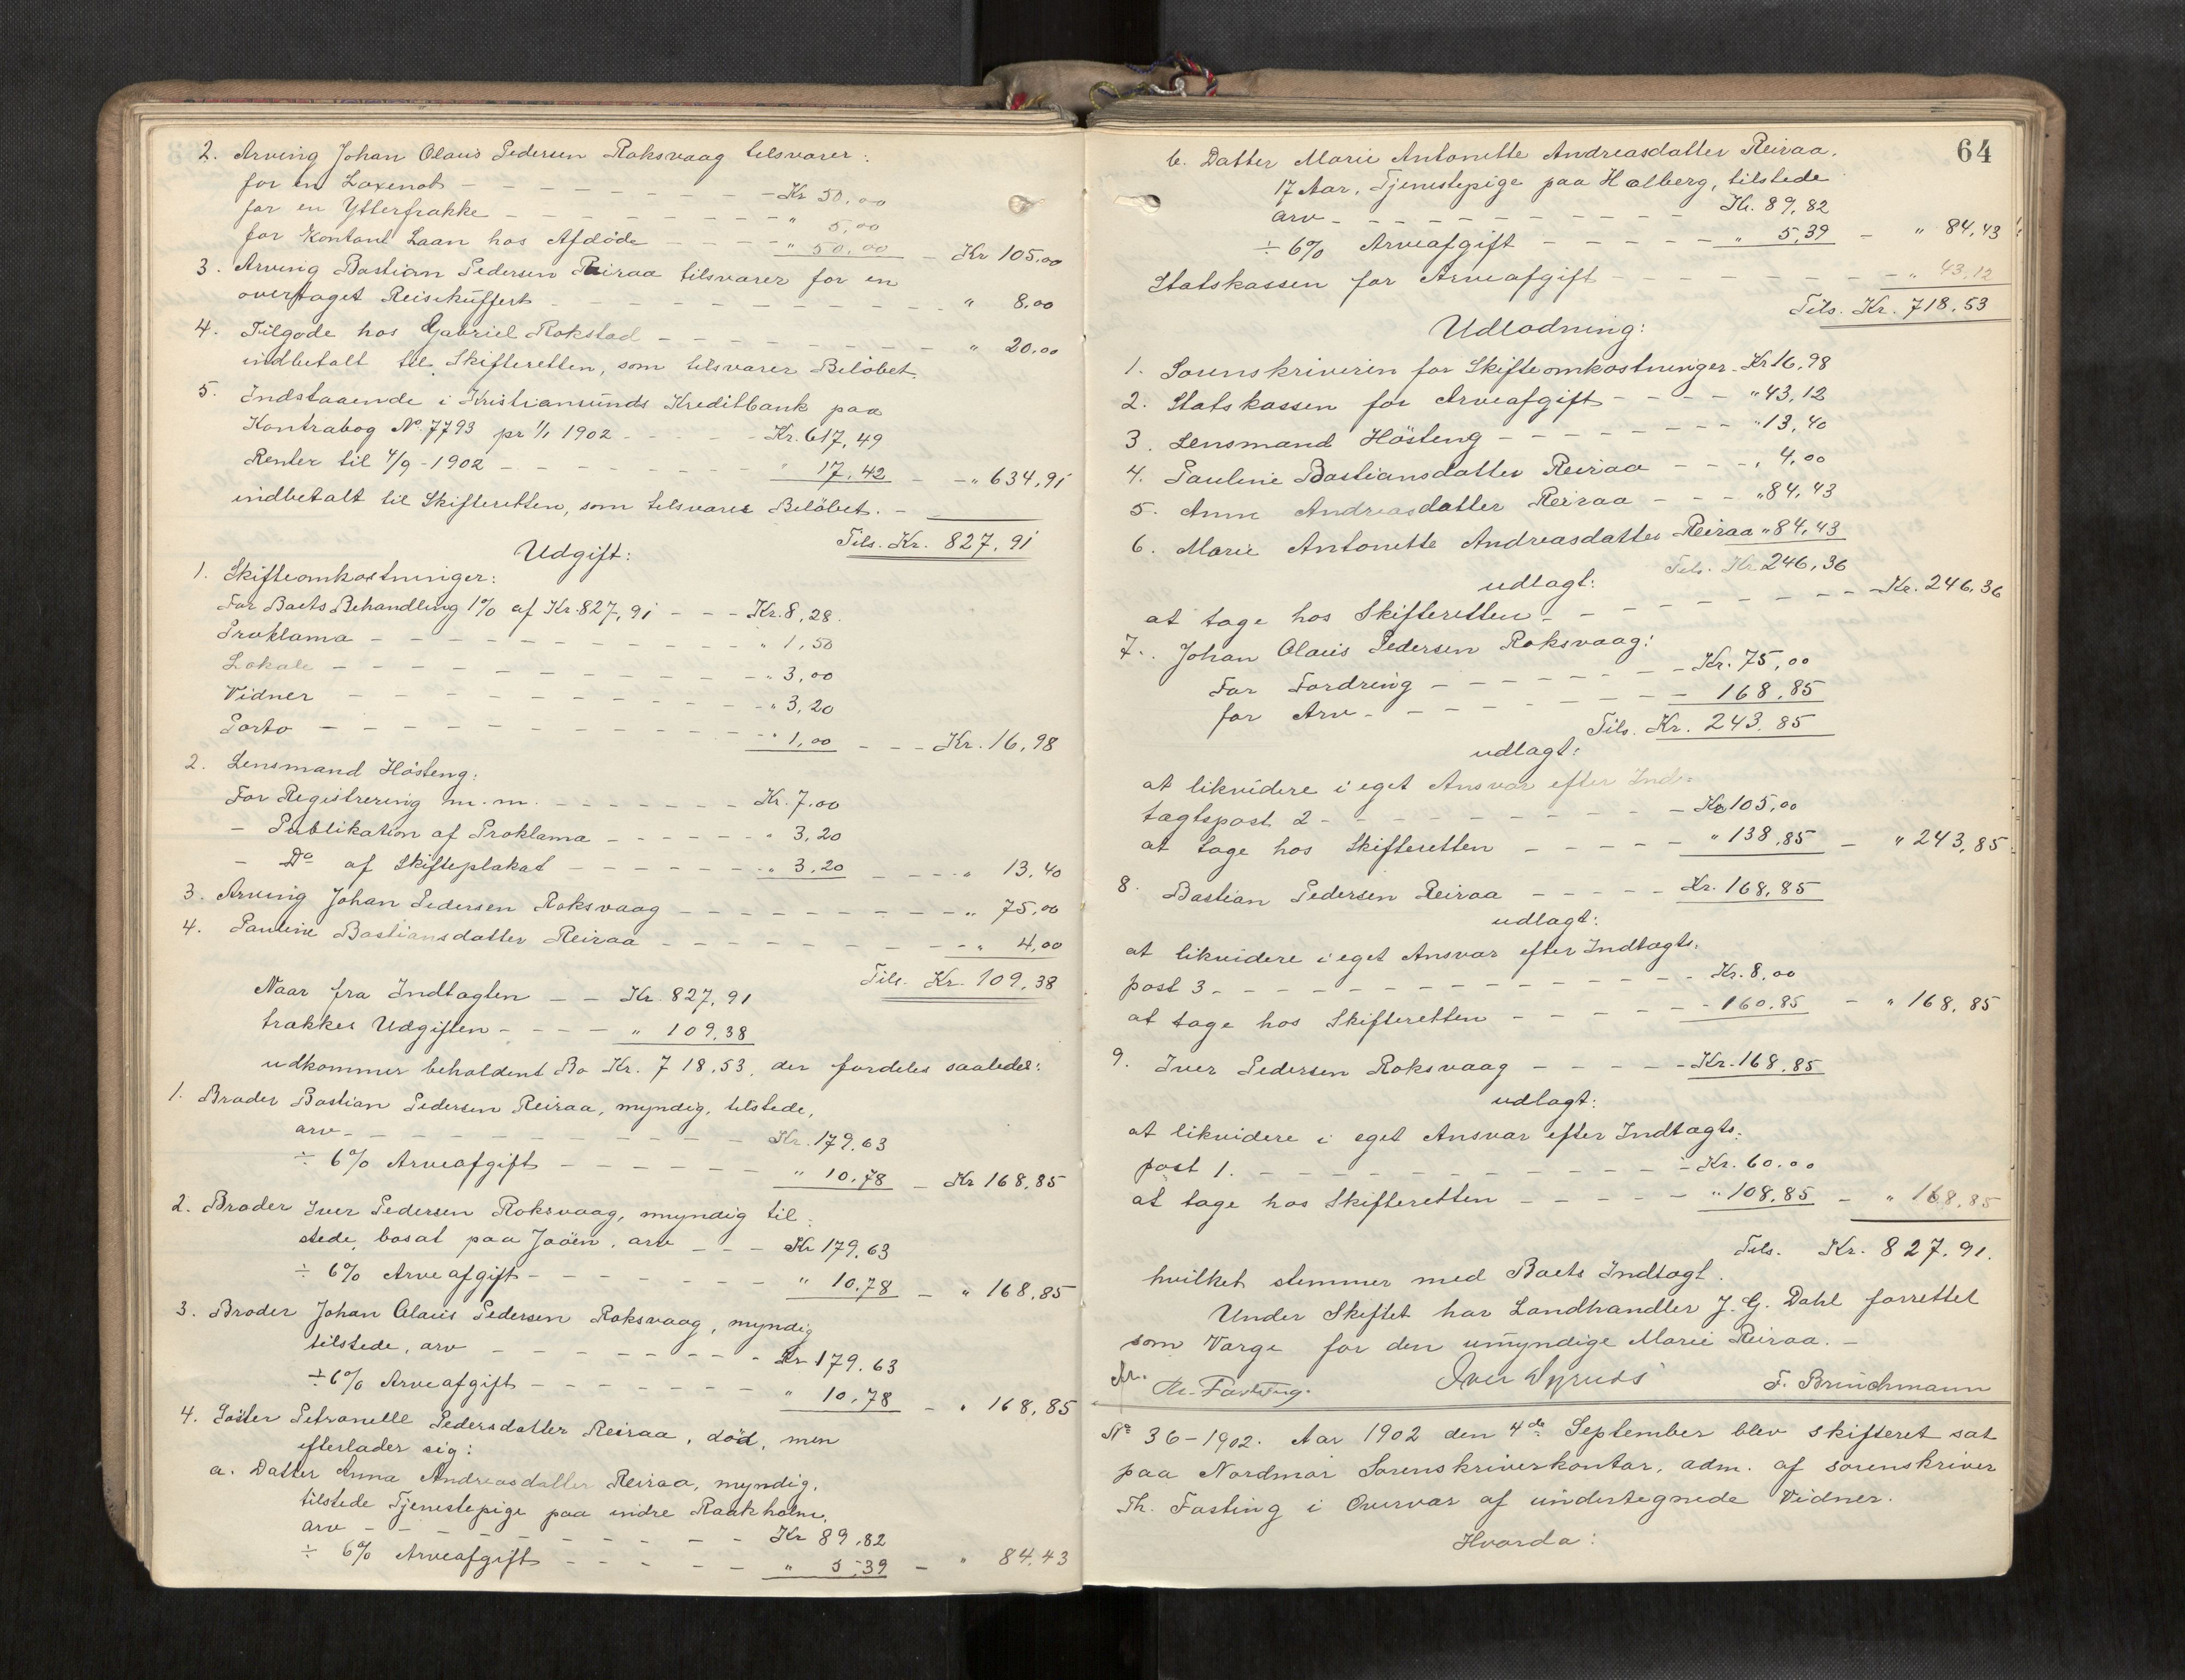 2. Arving Johan Olaus Pedersen Roksvaag tilsvarer:
for en Laxenot - - - Kr 50,00
for en Ytterfrakke - - - " 5,00
for Kontant Laan hos Afdöde - - - " 50,00 - Kr 105,00
3. Arving Bastian Pedersen Reiraa tilsvarer for en
overtaget Reisekuffert - - - " 8,00
4. Tilgode hos Gabriel Rokstad - - - " 20,00
indbetalt til Skifteretten, som tilsvarer Belöbet.
5. Indstaaende i Kristiansunds Kreditbank paa
Kontrabog No. 7793 pr 1/1 1902 - - - Kr. 617,49
Renter til 4/9-1902 - - - " 17,42 - - " 634,91
indbetalt til Skifteretten, som tilsvarer Belöbet. -
Tils. Kr. 827,91
Udgift:
1. Skifteomkostninger:
For Boets Behandling 1% af Kr. 827,91 - - - Kr. 8,28.
Proklama - - - " 1,50
Lokale - - - " 3,00
Vidner - - - " 3,20
Porto - - - " 1,00 - - - Kr. 16,98
2. Lensmand Hösteng:
For Registrering m.m. - - - Kr. 7,00
- Publikation af Proklama - - - " 3,20
- Do af Skifteplakat - - - " 3,20 - - - " 13,40
3. Arving Johan Pedersen Roksvaag - - - " 75,00
4. Pauline Bastiansdatter Reiraa - - - " 4,00
Tils. Kr. 109,38
Naar fra Indtægten - - Kr. 827,91
trækkes Udgiften - - - " 109,38
udkommer beholdent Bo Kr. 718,53, der fordeles saaledes:
1. Broder Bastian Pedersen Reiraa, myndig, tilstede,
arv - - - Kr. 179,63
÷ 6% Arveafgift - - - " 10,78 - Kr 168,85
2. Broder Iver Pedersen Roksvaag, myndig til-
stede, bosat paa Jaöen, arv - - - Kr 179,63
÷ 6% Arveafgift - - - " 10,78 - " 168,85
3. Broder Johan Olaus Pedersen Roksvaag, myndig
tilstede, arv - - - Kr 179,63
÷ 6% Arveafgift - - - " 10,78 - " 168,85
4. Söster Petronelle Pedersdatter Reiraa, död, men
efterlader sig:
a. Datter Anna Andreasdatter Reiraa, myndig,
tilstede Tjenestepige paa indre Raakholm,
arv - - - Kr 89,82
÷ 6% Arveafgift - - - " 5,39 - " 84,43
64
b. Datter Marie Antonette Andreasdatter Reiraa,
17 Aar, Tjenestepige paa Halberg, tilstede
arv - - - Kr. 89,82
÷ 6% Arveafgift - - - " 5,39 - " 84,43
Statskassen for Arveafgift - - - " 43,12
Tils. Kr. 718,53
Udlodning:
1. Sorenskriveren for Skifteomkostninger - Kr 16,98
2. Statskassen for Arveafgift - - - " 43,12
3. Lensmand Hösteng - - - " 13,40
4. Pauline Bastiansdatter Reiraa - - - " 4,00
5. Anne Andreasdatter Reiraa - - - " 84,43
6. Marie Antonette Andreasdatter Reiraa " 84,43
Tils. Kr 246,36
udlagt:
at tage hos Skifteretten - - - Kr. 246,36
7. Johan Olaus Pedersen Roksvaag:
For Fordring - - - Kr. 75,00
for Arv - - - 168,85
Tils. Kr. 243,85
udlagt:
at likvidere i eget Ansvar efter Ind-
tægtspost 2 - - - Kr 105,00
at tage hos Skifteretten - - - " 138,85 - " 243,85
8. Bastian Pedersen Reiraa - - - Kr. 168,85
udlagt:
at likvidere i eget Ansvar efter Indtægts-
post 3 - - - Kr. 8,00
at tage hos Skifteretten - - - 160,85 - " 168,85
9. Iver Pedersen Roksvaag - - - Kr. 168,85
udlagt:
at likvidere i eget Ansvar efter Indtægts-
post 1. - - - Kr. 60,00
at tage hos Skifteretten - - - " 108,85 - " 168,85
Tils. Kr. 827,91.
hvilket stemmer med Boets Indtægt.
Under Skiftet har Landhandler J. G. Dahl forrettet
som Værge for den umyndige Marie Reiraa. -
Th. Fasting. F. Brüchmann
No 36-1902. Aar 1902 den 4de September blev skifteret sat
paa Nordmør Sorenskriverkontor, adm. af sorenskriver
Th. Fasting i Overvær af undertegnede Vidner.
Hvorda: